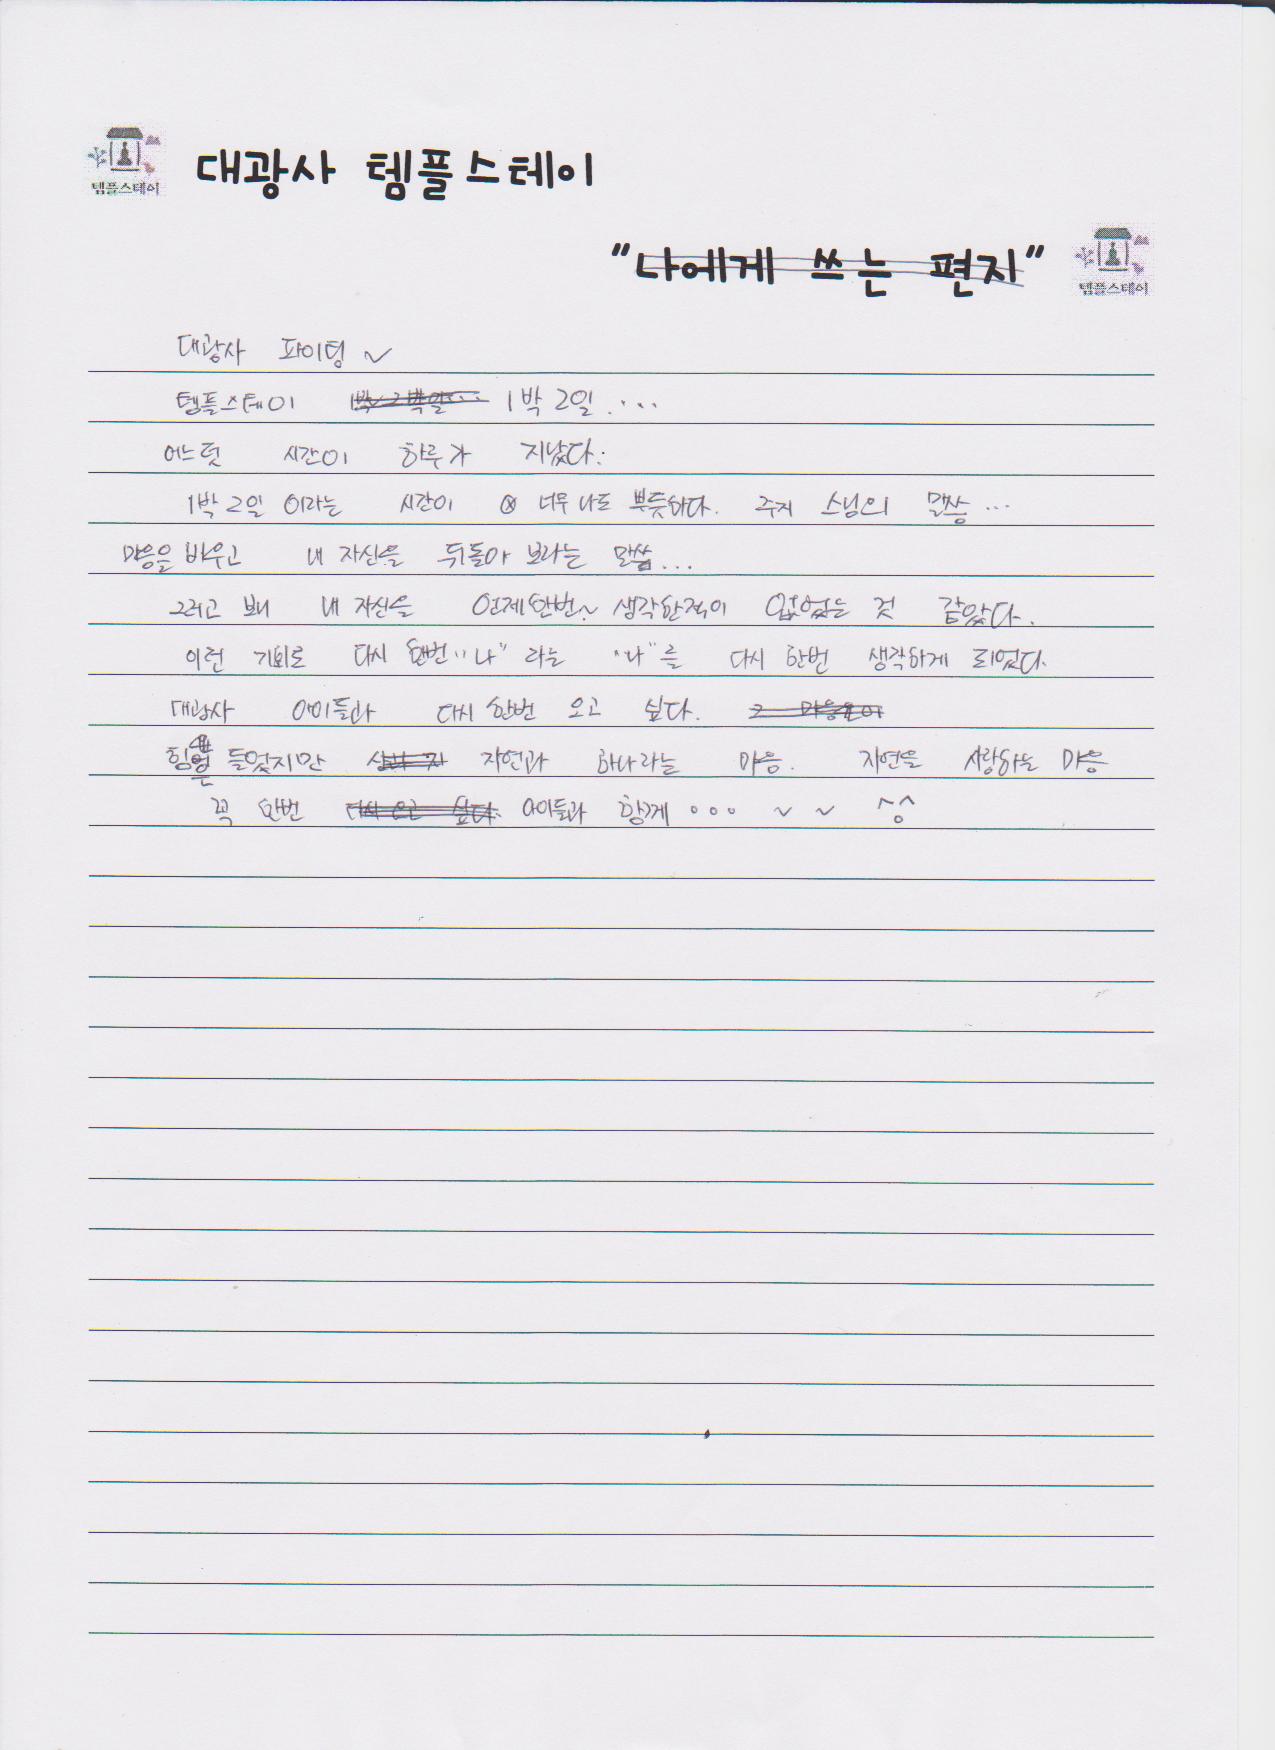 템플스테이
대광사 템플스테이
"나에게 쓰는 편지"
템플스테이
대광사 파이팅 ~
템플스테이 1박 2일 ....
어느덧 시간이 하루가 지났다.
1박 2일 이라는 시간이 너무나도 뿌듯하다. 주지 스님의 말씀 ...
마음을 비우고 내 자신을 뒤돌아 보라는 말씀...
그러고 보니 내 자신을 언제한번~ 생각한적이 없었는 것 같았다.
이런 기회로 다시 한번 "나" 라는 "나"를 다시 한번 생각하게 되었다.
대광사 아이들과 다시 한번 오고 싶다.
힘은 들었지만 자연과 하나라는 마음. 자연을 사랑하는 마음
꼭 한번 아이들과 함께 ... ~ ~ ^^